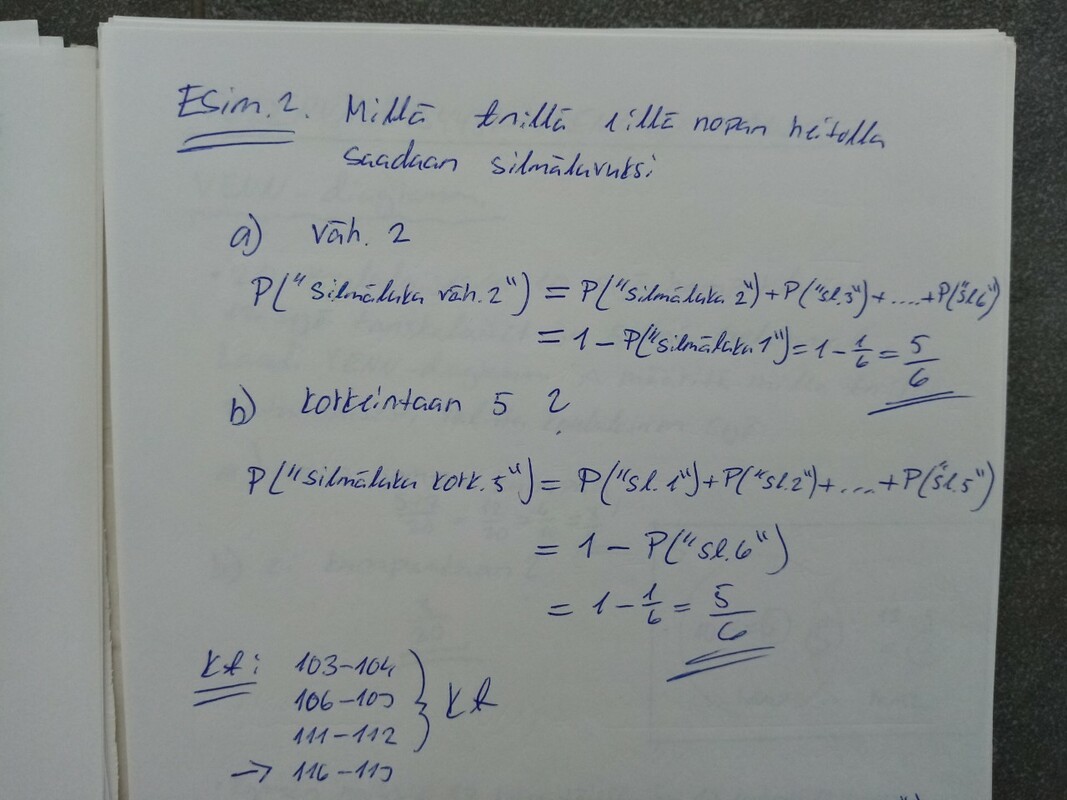 Esim. 2. Millä tnillä sillä nopan heitolla
saadaan silmäluvuksi
a) väh. 2
P("silmäluku väh. 2") = P("silmäluku 2") + P("sl.3") + .... + P("sl.6")
= 1 - P("silmäluku 1") = 1 - 1/6 = 5/6
b) korkeintaan 5 ?
P("silmäluku kork. 5") = P("sl. 1") + P("sl.2") + .... + P("sl.5")
= 1 - P("sl.6")
= 1 - 1/6 = 5/6
Kt: 103-104
106-109 } Kt
111-112
→ 116-119